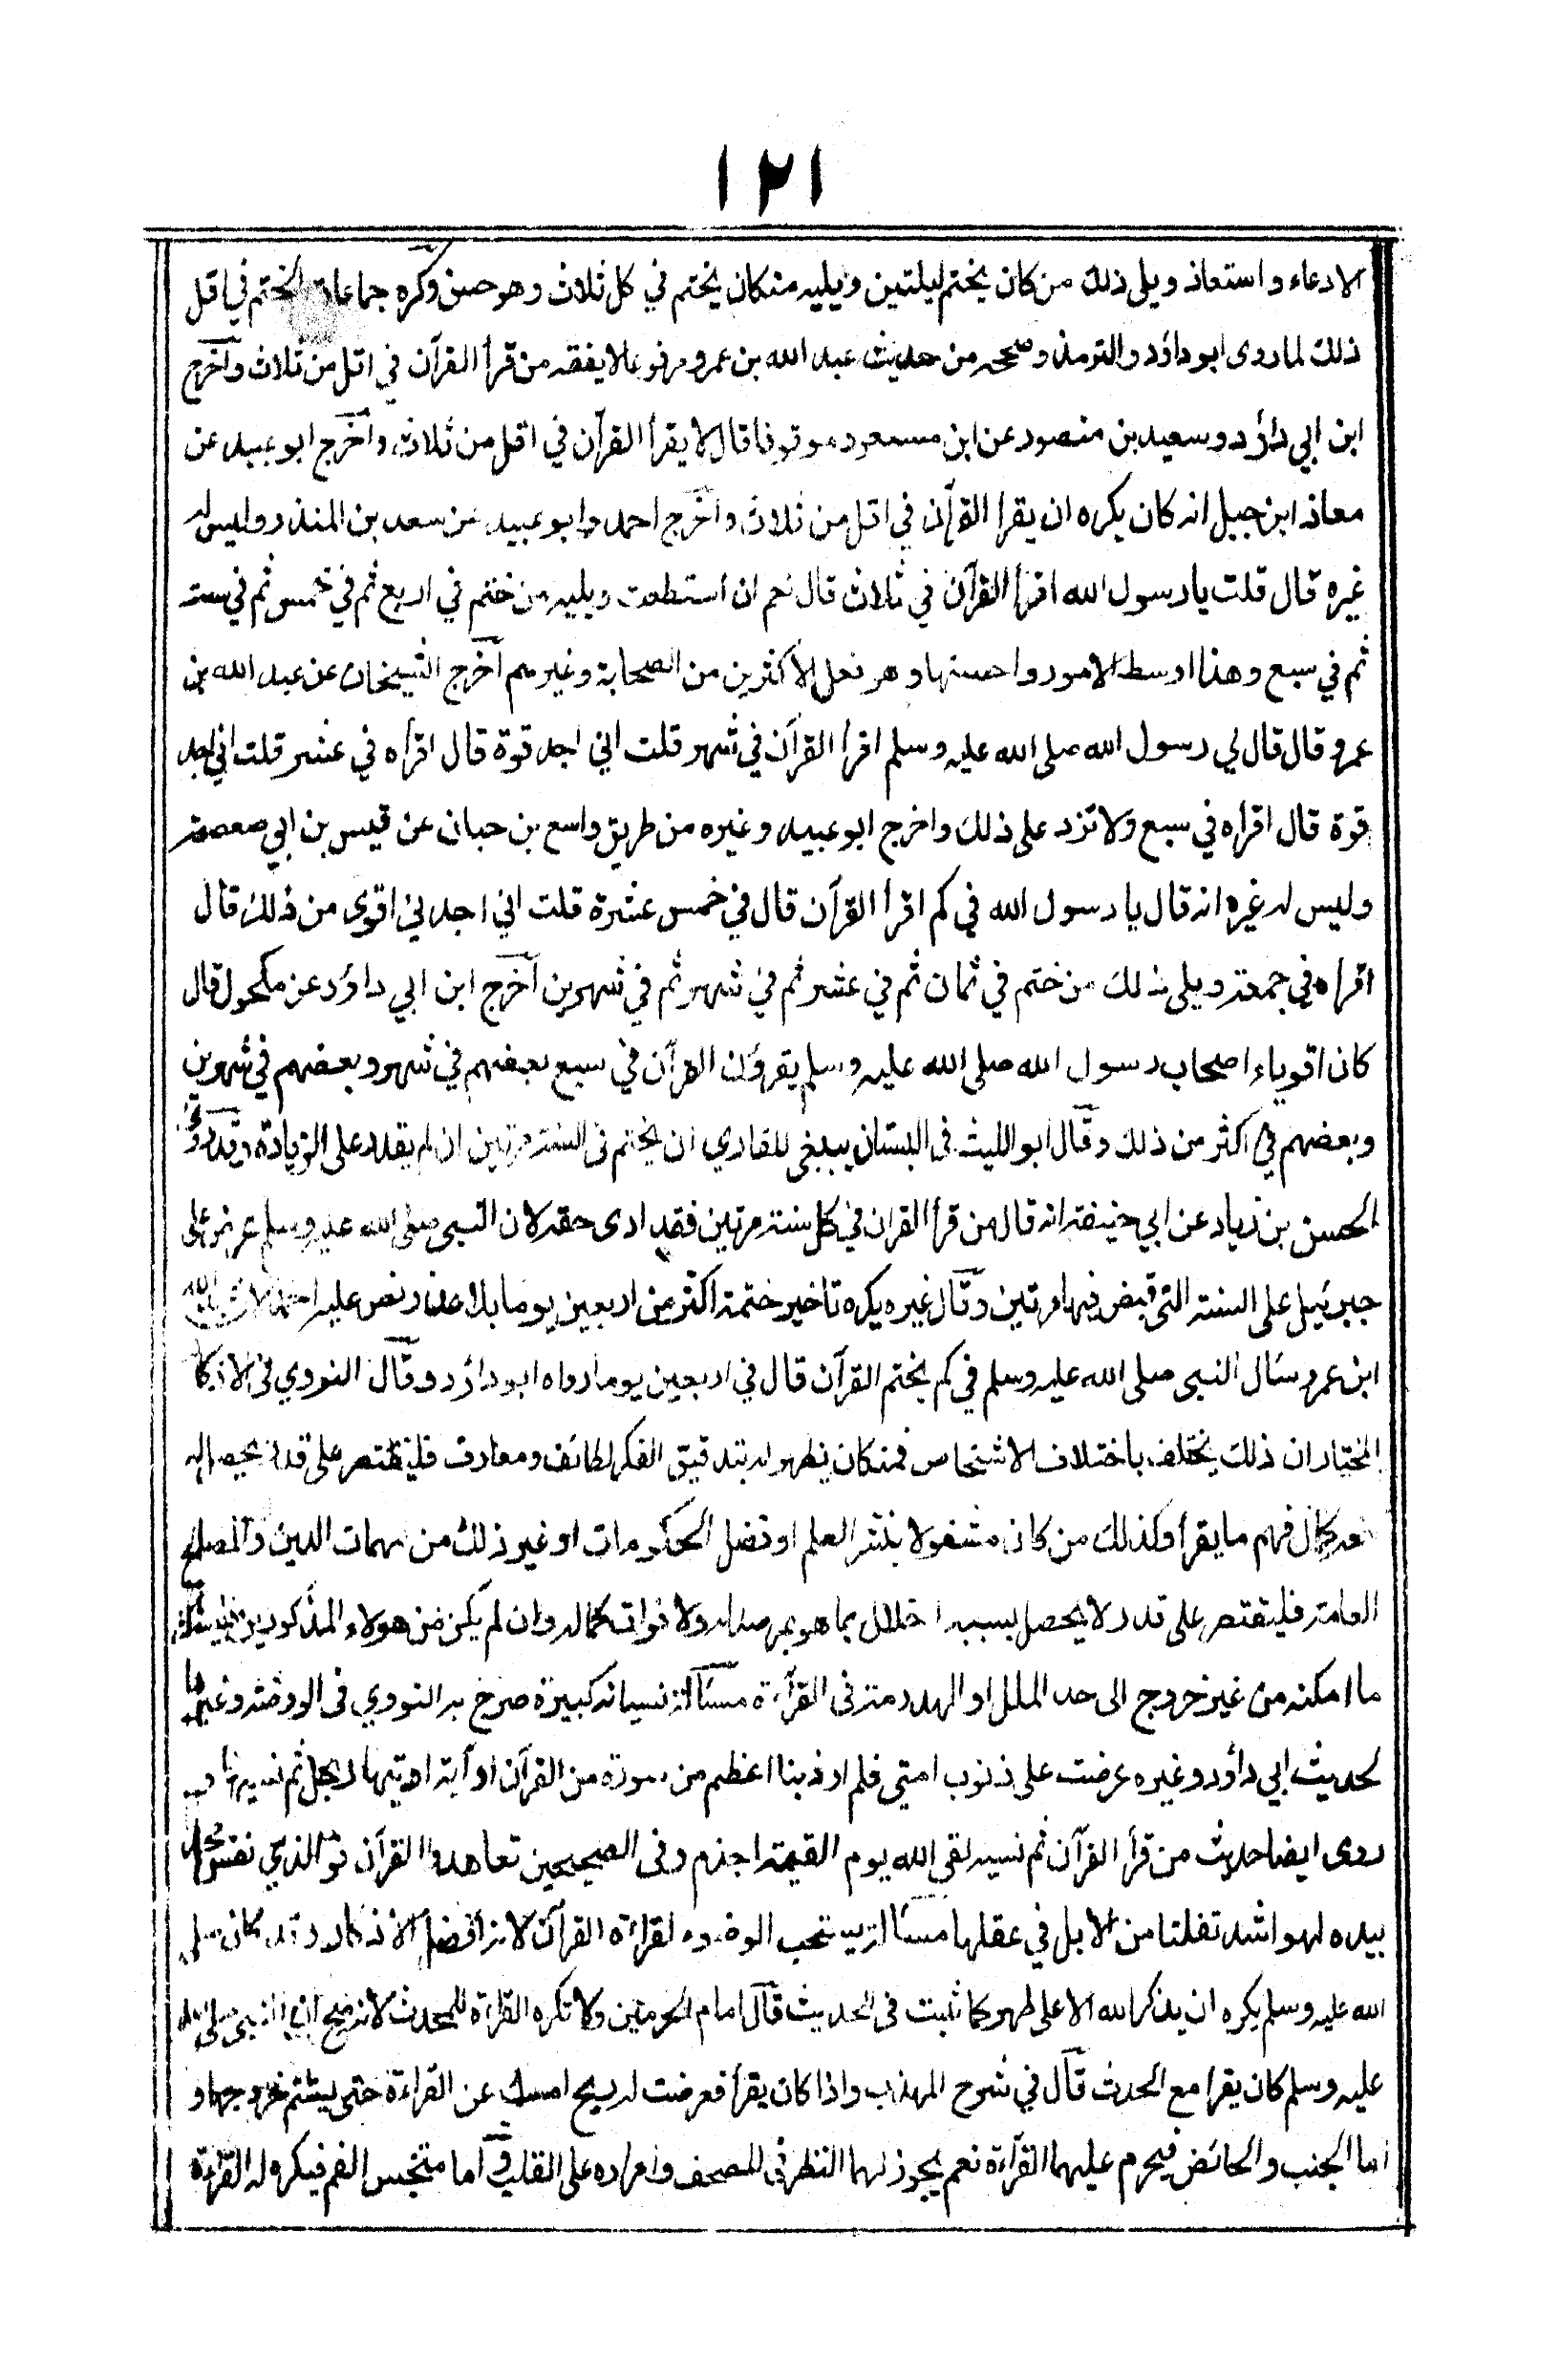 ١٢١
الا دعاء و استعاذ ويلى ذلك من كان يختم ليلتين ويليه من كان يختم في كل ثلاث وهو حسن وكره جماعات الختم في اقل
ذلك لما روى ابو داؤد والترمذ وصححه من حديث عبد الله بن عمرو مرفوعا لا يفقه من قرأ القرآن في اقل من ثلاث وأخرج
ابن ابي داؤد وسعيد بن منصور عن ابن مسعود موقوفا قال لا يقرأ القرآن في اقل من ثلاث وأخرج ابو عبيد عن
معاذ ابن جبل انه كان يكره ان يقرأ القرآن في اقل من ثلاث وأخرج احمد وابو عبيد عن سعد بن المنذر وليس له
غيره قال قلت يا رسول الله اقرأ القرآن في ثلاث قال نعم ان استطعت ويليه من ختم في اربع ثم في خمس ثم في ست
ثم في سبع وهذا اوسط الامور واحسنها وهو فعل الأكثرين من الصحابة وغيرهم أخرج الشيخان عن عبد الله بن
عمرو قال قال لي رسول الله صلى الله عليه وسلم اقرأ القرآن في شهر قلت اني اجد قوة قال اقرأه في عشر قلت اني اجد
قوة قال اقرأه في سبع ولا تزد على ذلك واخرج ابو عبيد وغيره من طريق واسع بن حبان عن قيس بن ابي صعصعة
وليس له غيره انه قال يا رسول الله في كم اقرأ القرآن قال في خمس عشرة قلت اني اجدني اقوى من ذلك قال
اقرأه في جمعة ويلي ذلك من ختم في ثمان ثم في عشر ثم في شهر ثم في شهرين أخرج ابن ابي داؤد عن مكحول قال
كان اقوياء اصحاب رسول الله صلى الله عليه وسلم يقرؤن القرآن في سبع بعضهم في شهر وبعضهم في شهرين
وبعضهم في اكثر من ذلك وقال ابو الليث في البستان ينبغي للقاري ان يختم في السنة مرتين ان لم يقدر على الزيادة وقد روى
الحسن بن زياد عن ابي حنيفة انه قال من قرأ القران في كل سنة مرتين فقد ادى حقه لان النبي صلى الله عليه وسلم عرض على
جبرئيل على السنة التي قبض فيها مرتين وقال غيره يكره تأخير ختمة اكثر من اربعين يوما بلا عذر نص عليه احمد لان عبد الله
ابن عمرو سأل النبى صلى الله عليه وسلم في كم يختم القرآن قال في اربعين يوما رواه ابو داؤد وقال النووي في الاذكا
المختار ان ذلك يختلف باختلاف الاشخاص فمن كان يظهر له بتدقيق الفكر لطائف ومعارف فليقتصر على قدر يحصل له
معه كمال فهم ما يقرأ وكذلك من كان مشغولا بنشر العلم او فصل الحكومات او غير ذلك من مهمات الدين والمصالح
العامة فليقتصر على قدر لا يحصل بسببه اخلال بما هو مرصد له ولا فوات كماله وان لم يكن من هولاء المذكورين فليستكثر
ما امكنه من غير خروج الى حد الملل او الهدرمة في القرأة مسألة نسيانه كبيرة صرح به النووي في الروضة وغيرها
لحديث ابي داؤد وغيره عرضت على ذنوب امتي فلم ار ذبنا اعظم من سورة من القرآن او آية اوتيها رجل ثم نسيها و
روى ايضا حديث من قرأ القرآن ثم نسيه لقى الله يوم القيمة اجذم وفي الصحيحين تعاهدوا القرآن فو الذي نفس محمد
بيده لهو اشد تفلتا من الابل في عقلها مسألة يستحب الوضوء لقراءة القرآن لانه أفضل الأذكار وقد كان صلى
الله عليه وسلم يكره ان يذكر الله الا على طهر كما ثبت في الحديث قال امام الحرمين ولا تكره القراءة للمحدث لانه صح ان النبي صلى الله
عليه وسلم كان يقرا مع الحدث قال في شرح المهذب واذا كان يقرأ فعرضت له ريح امسك عن القراءة حتى يستتم خروجها و
اما الجنب والحائض فيحرم عليهما القرآءة نعم يجوز لهما النظر في المصحف وامراره على القلب وأما متنجس الفم فيكره له القراءة